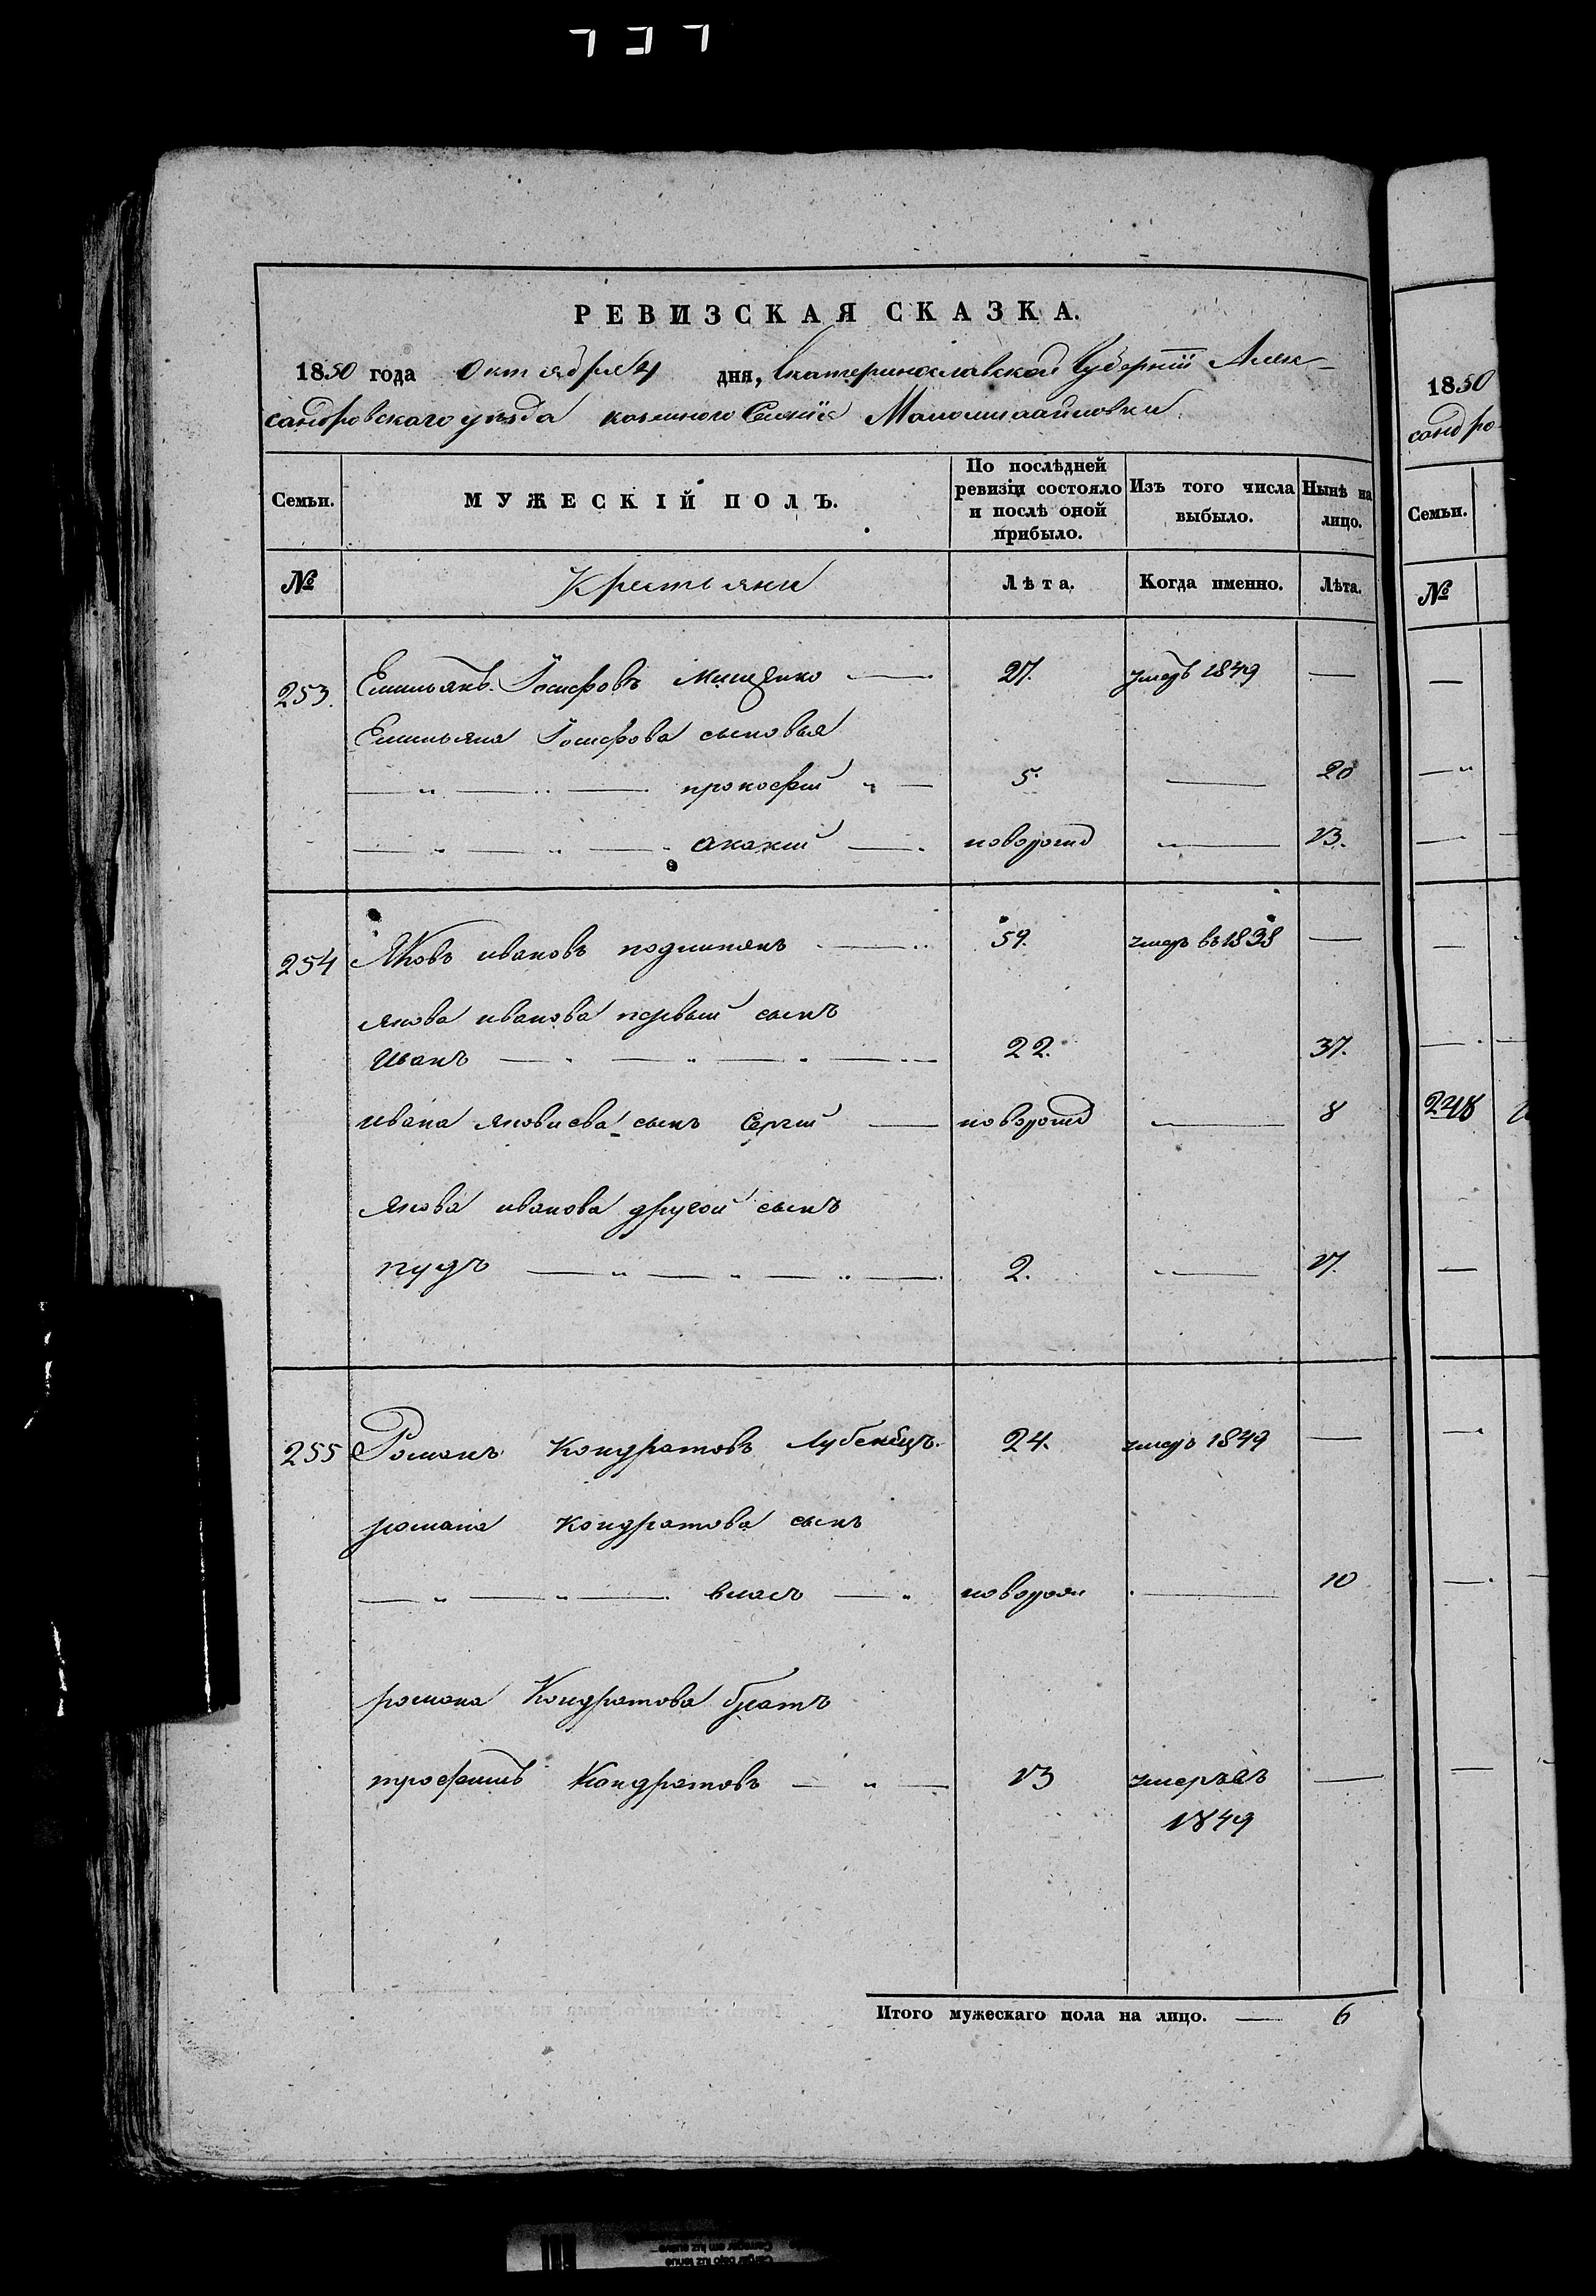 РЕВИЗСКАЯ СКАЗКА.
1850 года октября 4 дня, Екатеринославской Губернiи Алек-
сандровскаго уезда казенного Селенiя Маломихайловки
Семьи.
МУЖЕСКІЙ ПОЛЪ.
По послѣдней ревизіи состояло и послѣ оной прибыло.
Изъ того числа выбыло.
Нынѣ на лицо.
№ Крестьяни Лѣта. Когда именно. Лѣта.
253. Емильянъ Іосифовъ Мищенко — 27. умеръ 1849 —
Емильяна Іосифова сыновья
прокофий — 5. — 20
акакий — новорожд — 13.
254 Яковъ ивановъ — 59. умеръ въ 1838 —
якова иванова первый сынъ
иванъ — 22. 37.
ивана яковлева сынъ Сергий — новорожд — 8
якова иванова другой сынъ
пудъ — 2. — 17.
255 Романъ Кондратовъ Лубенецъ. 24. умеръ 1849 —
романа Кондратова сынъ
власъ — новорож — 10
романа Кондратова братъ
трофимъ Кондратовъ — 13 умеръ въ —
1849
Итого мужескаго пола на лицо. — 6
1850
сандро-
Семьи.
№
248